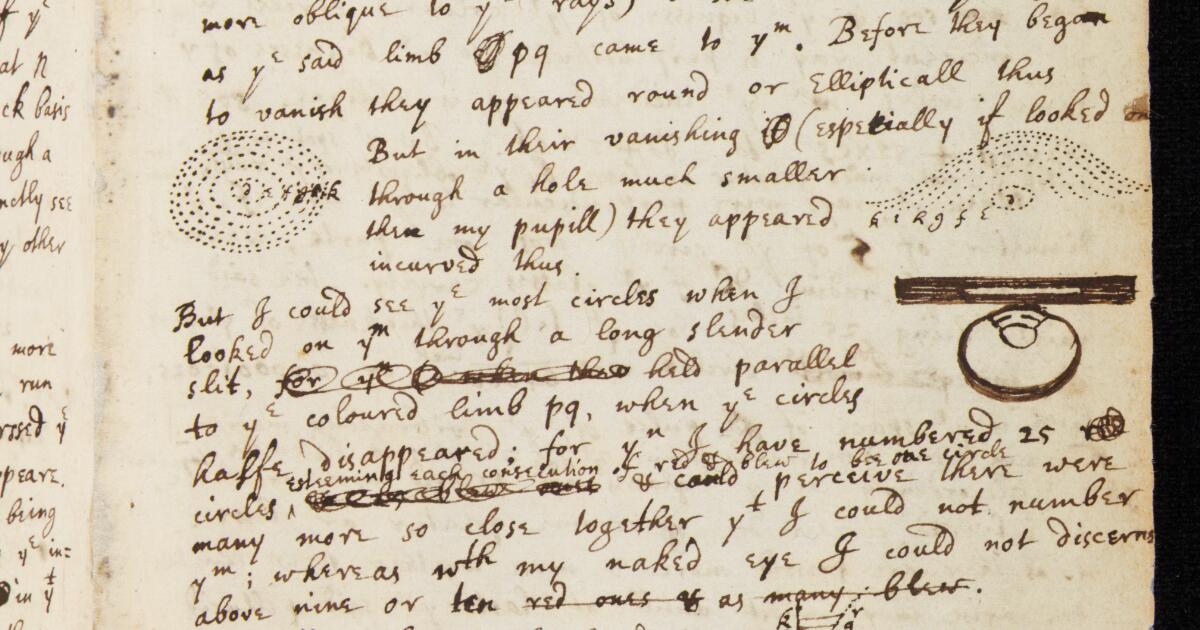 f yᵉ
at n
ck basis
ugh a
nctly see
y other
more
run
yᵉ
ppeare.
being
yᵉ in=
in yᵗ
more oblique to yᵉ rays)
as yᵉ said limb pq came to yᵐ. Before they began
to vanish they appeared round or Ellipticall thus
But in their vanishing (especially if looked on
through a hole much smaller
then my pupill) they appeared
incurved thus.
But I could see yᵉ most circles when I
looked on yᵐ through a long slender
slit, for yⁿ held parallel
to yᵉ coloured limb pq, when yᵉ circles
halfe disappeared; for yⁿ I have numbered 25 red
esteeming each consecution of red & blew to bee one circle
circles, & could perceive there were
many more so close together yᵗ I could not number
yᵐ; whereas wᵗʰ my naked eye I could not discerne
above nine or ten red ones & as many blew.
k r